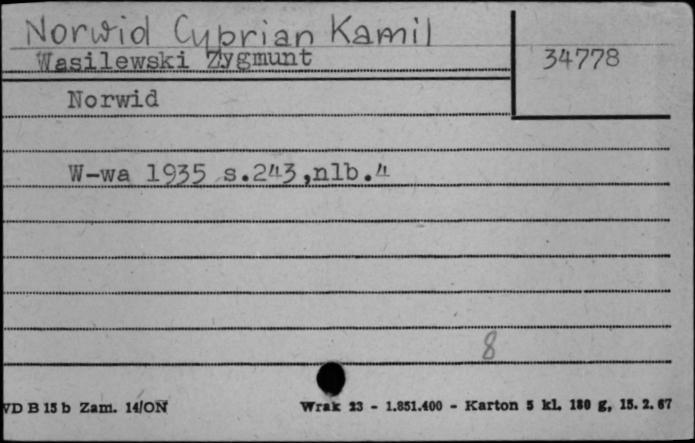 Norwid Cyprian Kamil
Wasilewski Zygmunt
34778
Norwid
W-wa 1935 s.243,nlb.4
8
VD B 15 b Zam. 14/ON Wrak 23 - 1.851.400 - Karton 5 kl. 180 g, 15. 2. 67